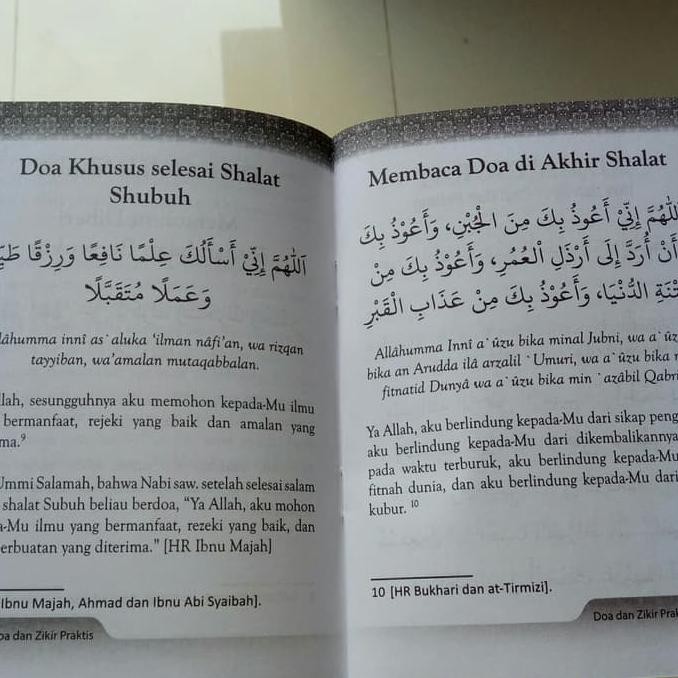 Doa Khusus selesai Shalat
Shubuh
اَللّٰهُمَّ إِنِّيْ أَسْأَلُكَ عِلْمًا نَافِعًا وَرِزْقًا
وَعَمَلًا مُتَقَبَّلًا
innî as`aluka ‘ilman nâfi’an, wa rizqan
tayyiban, wa’amalan mutaqabbalan.
sesungguhnya aku memohon kepada-Mu ilmu
bermanfaat, rejeki yang baik dan amalan yang
9
Ummi Salamah, bahwa Nabi saw. setelah selesai salam
shalat Subuh beliau berdoa, “Ya Allah, aku mohon
ilmu yang bermanfaat, rezeki yang baik, dan
yang diterima." [HR Ibnu Majah]
Ibnu Majah, Ahmad dan Ibnu Abi Syaibah].
dan Zikir Praktis
Membaca Doa di Akhir Shalat
إِنِّيْ أَعُوذُ بِكَ مِنَ الْجُبْنِ، وَأَعُوْذُ بِكَ
أَنْ أُرَدَّ إِلَى أَرْذَلِ الْعُمُرِ، وَأَعُوْذُ بِكَ مِنْ
الدُّنْيَا، وَأَعُوْذُ بِكَ مِنْ عَذَابِ الْقَبْرِ
Allâhumma Innî a`ûzu bika minal Jubni, wa
bika an Arudda ilâ arzalil `Umuri, wa a`ûzu bika
fitnatid Dunyâ wa a`ûzu bika min `azâbil Qabri
Ya Allah, aku berlindung kepada-Mu dari sikap
aku berlindung kepada-Mu dari dikembalikannya
pada waktu terburuk, aku berlindung kepada-Mu
fitnah dunia, dan aku berlindung kepada-Mu dari
kubur. 10
10 [HR Bukhari dan at-Tirmizi].
Doa dan Zikir